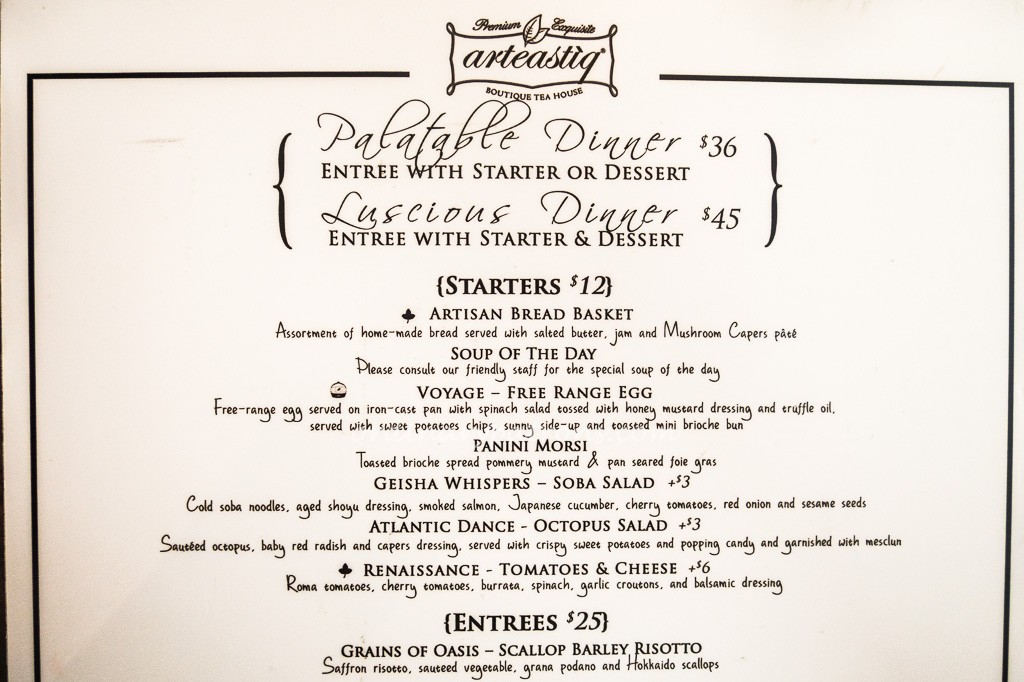 Premium Exquisite
arteastiq
BOUTIQUE TEA HOUSE
Palatable Dinner $36
ENTREE WITH STARTER OR DESSERT
Luscious Dinner $45
ENTREE WITH STARTER & DESSERT
{STARTERS $12}
ARTISAN BREAD BASKET
Assortment of home-made bread served with salted butter, jam and Mushroom Capers pâté
SOUP OF THE DAY
Please consult our friendly staff for the special soup of the day
VOYAGE – FREE RANGE EGG
Free-range egg served on iron-cast pan with spinach salad tossed with honey mustard dressing and truffle oil,
served with sweet potatoes chips, sunny side-up and toasted mini brioche bun
PANINI MORSI
Toasted brioche spread pommery mustard & pan seared foie gras
GEISHA WHISPERS – SOBA SALAD +$3
Cold soba noodles, aged shoyu dressing, smoked salmon, Japanese cucumber, cherry tomatoes, red onion and sesame seeds
ATLANTIC DANCE - OCTOPUS SALAD +$3
Sautéed octopus, baby red radish and capers dressing, served with crispy sweet potatoes and popping candy and garnished with mesclun
RENAISSANCE - TOMATOES & CHEESE +$6
Roma tomatoes, cherry tomatoes, burrata, spinach, garlic croutons, and balsamic dressing
{ENTREES $25}
GRAINS OF OASIS – SCALLOP BARLEY RISOTTO
Saffron risotto, sauteed vegetable, grana podano and Hokkaido scallops